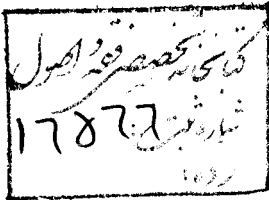 کتابخانه تخصصی فقه و اصول
شماره ثبت
۱۶۵۶۶